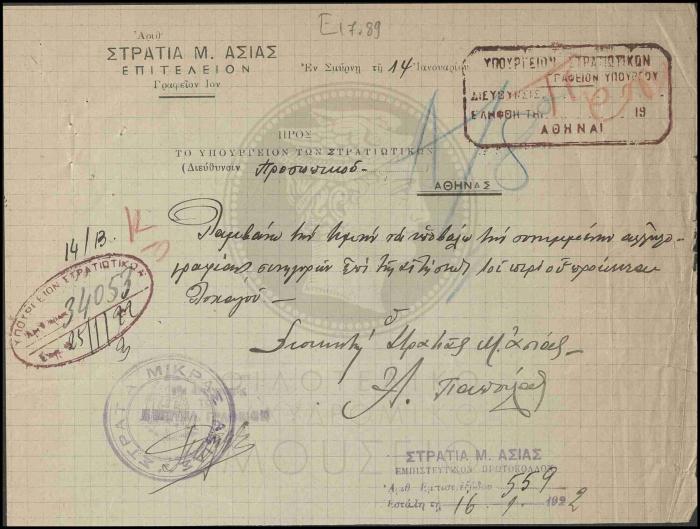 Ε17.89
Ἀριθ
ΣΤΡΑΤΙΑ Μ. ΑΣΙΑΣ
ΕΠΙΤΕΛΕΙΟΝ
Γραφεῖον Ιον
Ἐν Σμύρνῃ τῇ 14 Ἰανουαρίου
ΥΠΟΥΡΓΕΙΟΝ ΣΤΡΑΤΙΩΤΙΚΩΝ
ΓΡΑΦΕΙΟΝ ΥΠΟΥΡΓΟΥ
ΔΙΕΥΘΥΝΣΙΣ
ΕΛΗΦΘΗ ΤΗ 19
ΑΘΗΝΑΙ
ΠΡΟΣ
ΤΟ ΥΠΟΥΡΓΕΙΟΝ ΤΩΝ ΣΤΡΑΤΙΩΤΙΚΩΝ
(Διεύθυνσιν Προσωπικοῦ
ΑΘΗΝΑΣ
14/13
Λαμβάνω τὴν τιμὴν νὰ ὑποβάλω τὴν συνημμένην ἀλληλο-
γραφίαν ἐπὶ τῆς αἰτήσεως τοῦ περὶ οὗ πρόκειται
Λοχαγοῦ.
ΥΠΟΥΡΓΕΙΟΝ ΣΤΡΑΤΙΩΤΙΚΩΝ
34053
25/III/22
Ὁ
Διοικητὴς Στρατιᾶς Μ. Ἀσίας
Α. Παπούλας
ΣΤΡΑΤΙΑ ΜΙΚΡΑΣ ΑΣΙΑΣ
ΣΤΡΑΤΙΑ Μ. ΑΣΙΑΣ
ΕΜΠΙΣΤΕΥΤΙΚΟΝ ΠΡΩΤΟΚΟΛΛΟΝ
Ἀριθ Ἐμπιστ. ἐξόδου 559
Ἐστάλη τῇ 16 1 1922